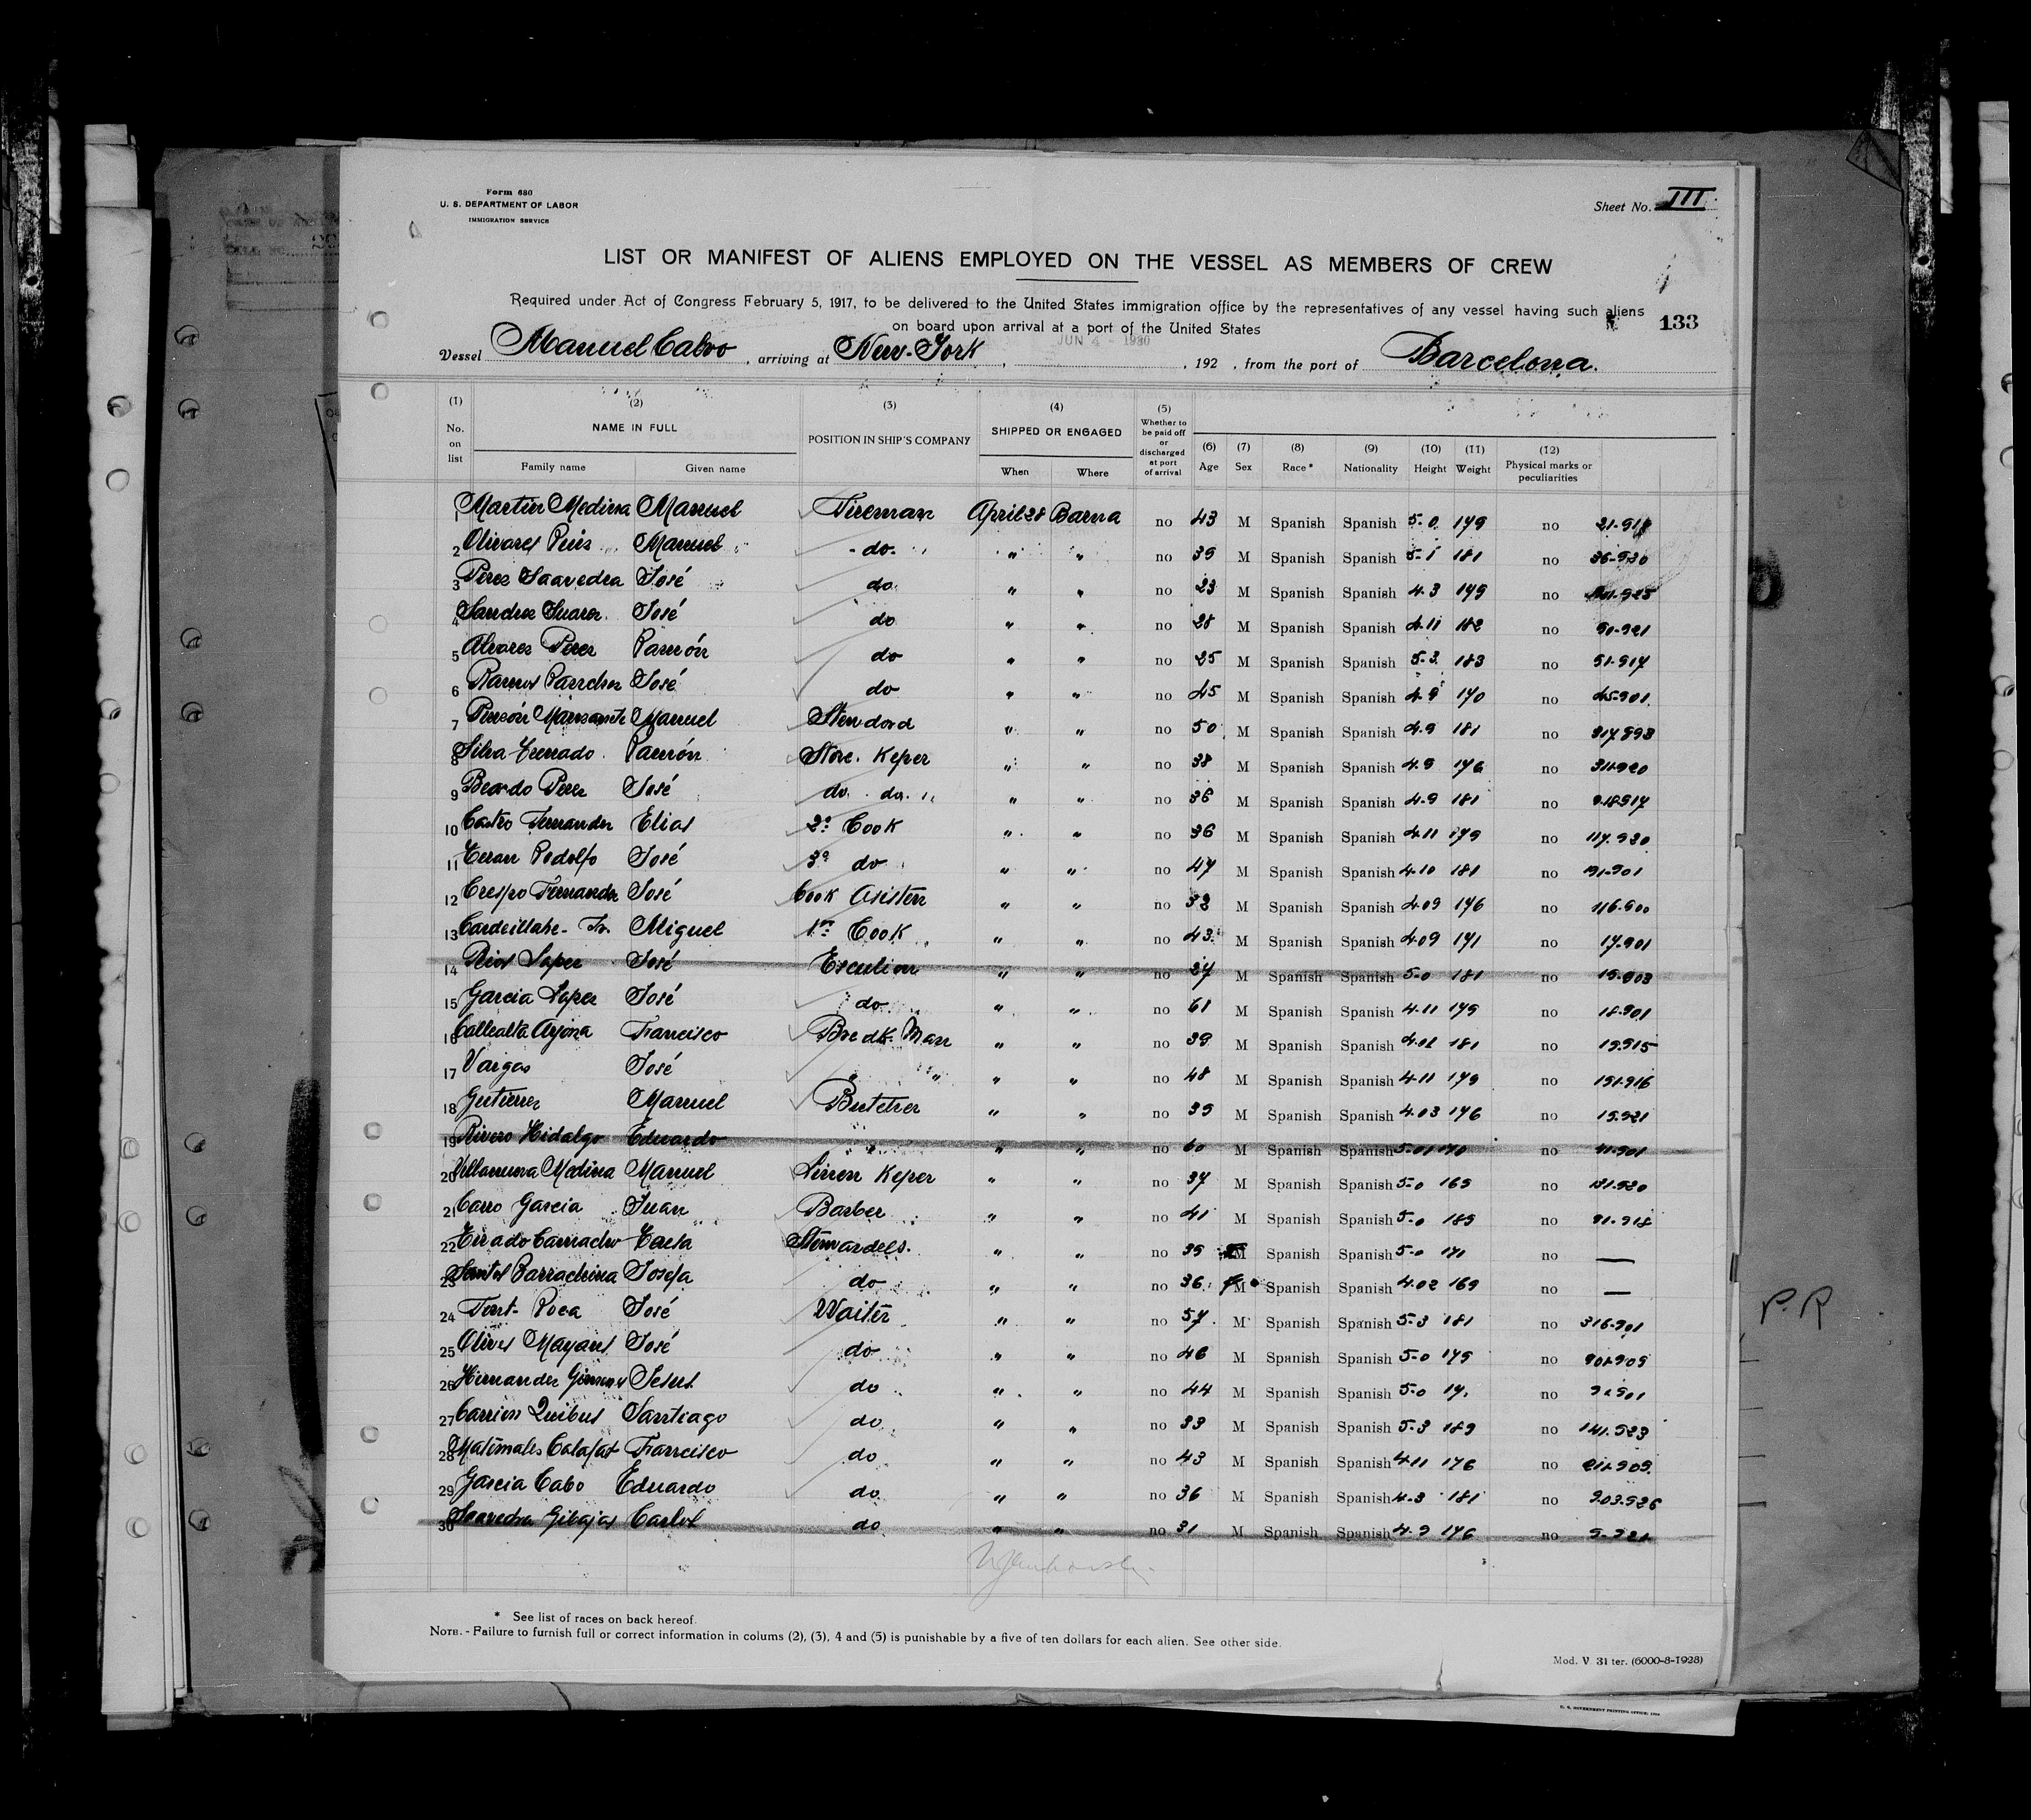 Form 680
U. S. DEPARTMENT OF LABOR
IMMIGRATION SERVICE
Sheet No. III
LIST OR MANIFEST OF ALIENS EMPLOYED ON THE VESSEL AS MEMBERS OF CREW
Required under Act of Congress February 5, 1917, to be delivered to the United States immigration office by the representatives of any vessel having such aliens
on board upon arrival at a port of the United States
133
JUN 4 - 1930
Vessel Manuel Calvo, arriving at New-York, , 192 , from the port of Barcelona.
(1) No. on list (2) NAME IN FULL Family name Given name (3) POSITION IN SHIP'S COMPANY (4) SHIPPED OR ENGAGED When Where (5) Whether to be paid off or discharged at port of arrival (6) Age (7) Sex (8) Race * (9) Nationality (10) Height (11) Weight (12) Physical marks or peculiarities
1 Martin Medina Manuel Fireman April 28 Barna no 43 M Spanish Spanish 5-0 179 no
2 Olivares Manuel do " " no 39 M Spanish Spanish 5-1 181 no 36-930
3 Perez Saavedra José do " " no 23 M Spanish Spanish 4-3 179 no
4 José do " " no 28 M Spanish Spanish 4-11 182 no 90-921
5 Alvares Perez Ramón do " " no 25 M Spanish Spanish 5-3 183 no 51-917
6 Ramos José do " " no 45 M Spanish Spanish 4-9 170 no 45-901
7 Manuel Stewdord " " no 50 M Spanish Spanish 4-9 181 no
8 Silva Ramón Store. Keper " " no 38 M Spanish Spanish 4-9 176 no
9 Beardo Perez José do. do. " " no 36 M Spanish Spanish 4-9 181 no
10 Castro Fernandez Elias 2º Cook " " no 36 M Spanish Spanish 4-11 179 no 117-930
11 Teran Rodolfo José 3º do " " no 47 M Spanish Spanish 4-10 181 no 91-901
12 Crespo Fernandez José Cook Asisten " " no 32 M Spanish Spanish 4-09 176 no 116-900
13 Miguel 1er Cook " " no 43 M Spanish Spanish 4-09 171 no 17-901
14 Rios Lopez José Esculion " " no 27 M Spanish Spanish 5-0 181 no 15-903
15 Garcia Lopez José do " " no 61 M Spanish Spanish 4-11 179 no 18-901
16 Callealta Arjona Francisco Bredk. Man " " no 39 M Spanish Spanish 4-02 181 no 19-915
17 Vargas José " " " " no 48 M Spanish Spanish 4-11 179 no 151-916
18 Gutierrez Manuel Butcher " " no 39 M Spanish Spanish 4-03 176 no 15-921
19 Rivero Hidalgo Eduardo " " " no 60 M Spanish Spanish 5-01 170 no 41-901
20 Villanueva Medina Manuel Linen Keper " " no 37 M Spanish Spanish 5-0 165 no 131-920
21 Carro Garcia Juan Barber " " no 41 M Spanish Spanish 5-0 185 no 91-918
22 Tirado Camacho Stewardess. " " no 39 M Spanish Spanish 5-0 171 no —
23 Santos Barrachina Josefa do " " no 36 M Spanish Spanish 4-02 169 no —
24 Font- Roca José Waiter " " no 57 M Spanish Spanish 5-3 181 no 316-901
25 Olives Mayans José do " " no 46 M Spanish Spanish 5-0 175 no 901-909
26 Hernandez Gimenez Jesus do " " no 44 M Spanish Spanish 5-0 no
27 Carrion Quibus Santiago do " " no 33 M Spanish Spanish 5-3 189 no 141-923
28 Matimales Calafat Francisco do " " no 43 M Spanish Spanish 4-11 176 no 211-909
29 Garcia Cabo Eduardo do " " no 36 M Spanish Spanish 4-3 181 no 903-926
30 Saavedra Gibajas Carlos do " " no 31 M Spanish Spanish 4-9 176 no 9-921
P.R
* See list of races on back hereof.
NOTE. - Failure to furnish full or correct information in colums (2), (3), 4 and (5) is punishable by a five of ten dollars for each alien. See other side.
Mod. V. 31 ter. (6000-8-1928)
U. S. GOVERNMENT PRINTING OFFICE: